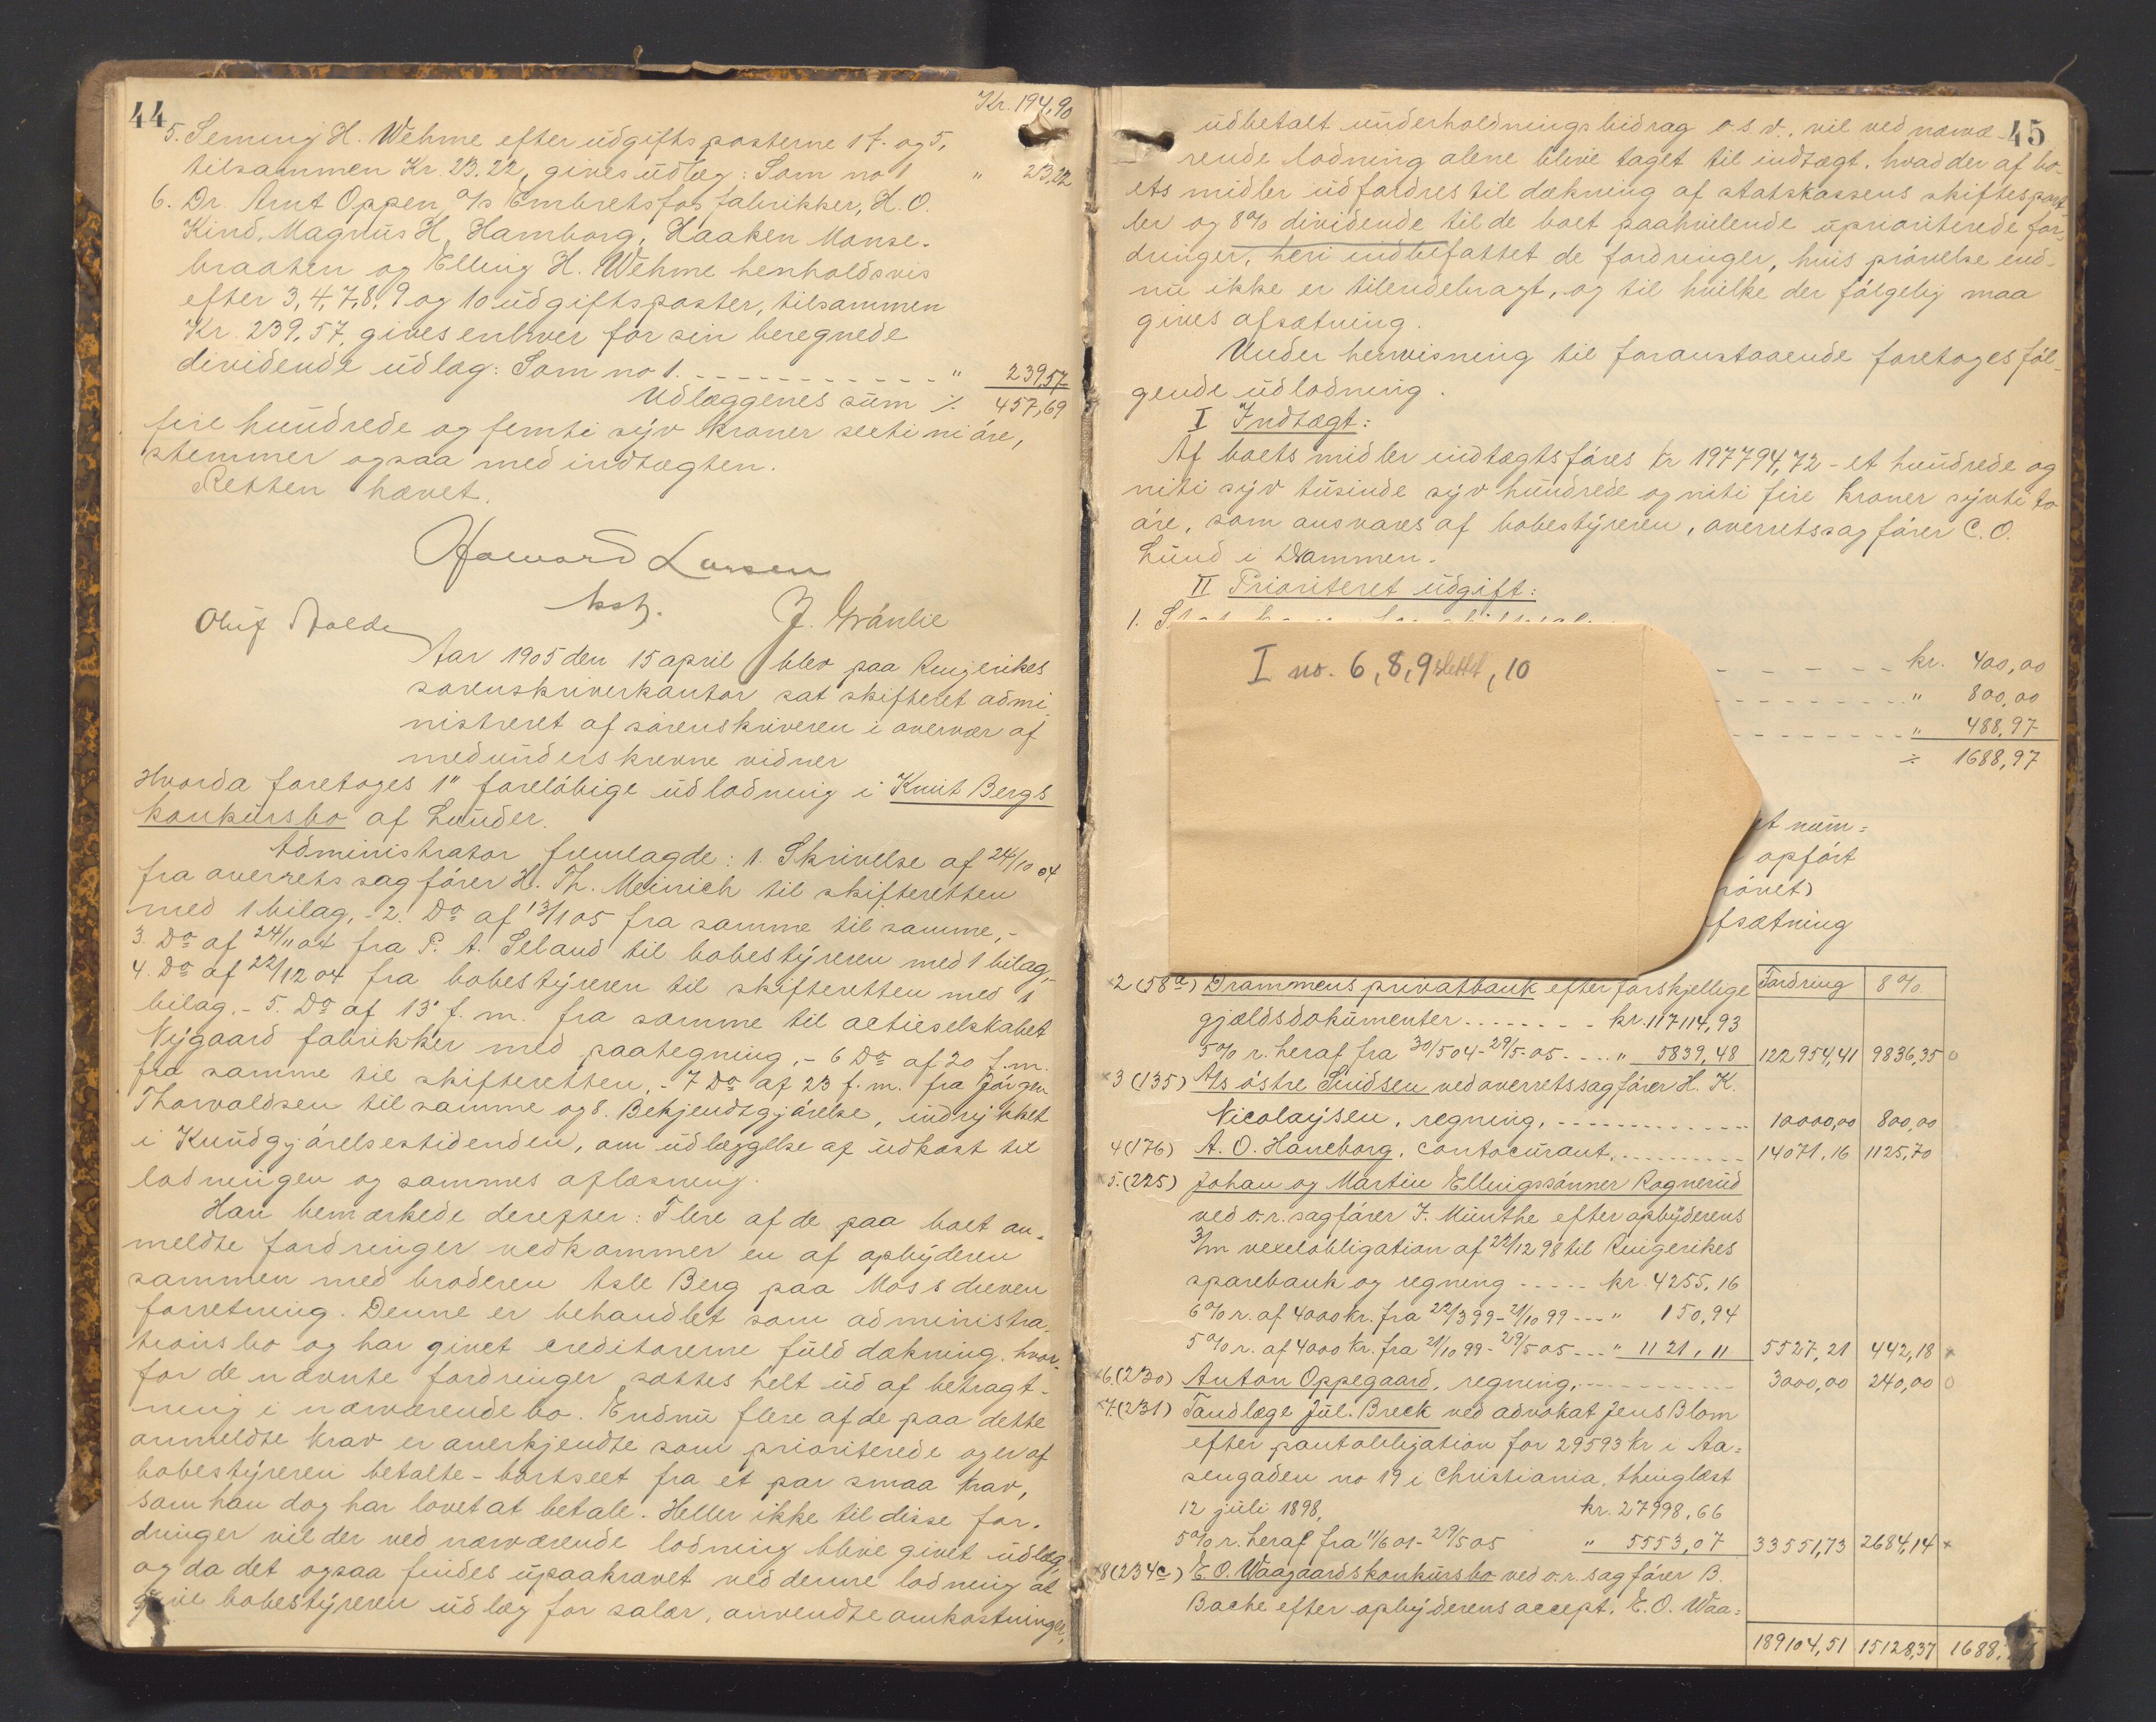 44
Kr. 194,90
5. Seming H. Wehme efter udgiftsposterne 1 f. og 5,
tilsammen Kr. 23.22, gives udlæg: Som no 1 " 23.22
6. Dr. Arnt Oppen, A/s Embretsfos fabrikker, H. O.
Kind, Magnus H. Hamborg, Haaken Monse-
braaten og Elling H. Wehme henholdsvis
efter 3, 4, 7, 8, 9 og 10 udgiftsposter, tilsammen
Kr. 239,57, gives enhver for sin beregnede
dividende udlæg: Som no 1. " 239,57
Udlæggenes sum ./. 457,69
fire hundrede og femti syv kroner seksti ni øre,
stemmer ogsaa med indtægten.
Retten hævet.
Haavard Larsen
kst.
Oluf Molde J. Grønlie
Aar 1905 den 15 april blev paa Ringerikes
sorenskriverkontor sat skifteret admi-
nistreret af sorenskriveren i overvær af
medunderskrevne vidner
Hvorda foretoges 1" foreløbige udlodning i Knut Bergs
konkursbo af Lunder.
Administrator fremlagde: 1. Skrivelse af 24/10 04
fra overretssagfører H. Th. Meinich til skifteretten
med 1 bilag, - 2. Do af 13/1 05 fra samme til samme, -
3. Do af 24/11 04 fra P. A. Seland til bobestyreren med 1 bilag, -
4. Do af 22/12 04 fra bobestyreren til skifteretten med 1
bilag. - 5. Do af 13' f. m. fra samme til actieselskabet
Nygaard fabrikker med paategning, - 6 Do af 20 f.m.
fra samme til skifteretten, - 7 Do af 23 f. m. fra Jørgen
Thorvaldsen til samme og 8. Bekjendtgjørelse, indrykket
i Kundgjørelsestidenden, om udlæggelse af udkast til
lodningen og sammes aflæsning.
Han bemærkede derefter: Flere af de paa boet an-
meldte fordringer vedkommer en af opbyderen
sammen med broderen Asle Berg paa Moss dreven
forretning. Denne er behandlet som administra-
tionsbo og har givet creditorerne fuld dækning, hvor-
for de nævnte fordringer sættes helt ud af betragt-
ning i nærværende bo. Endnu flere af de paa dette
anmeldte krav er anerkjendte som prioriterede og er af
bobestyreren betalte - bortseet fra et par smaa krav,
som han dog har lovet at betale. Heller ikke til disse for-
dringer vil der ved nærværende lodning blive givet udlæg,
og da det ogsaa findes upaakrævet ved denne lodning at
give bobestyreren udlæg for salær, anvendte omkostninger,
45
udbetalt underholdningsbidrag o.s.v., vil ved nærvæ-
rende lodning alene blive taget til indtægt, hvad der af bo-
ets midler udfordres til dækning af statskassens skiftespart-
ler og 8% dividende til de boet paahvilende uprioriterede for-
dringer, heri indbefattet de fordringer, hvis prøvelse end-
nu ikke er tilendebragt, og til hvilke der følgelig maa
gives afsætning.
Under henvisning til foranstaaende foretoges føl-
gende udlodning.
I Indtægt:
Af boets midler indtægtsføres kr 197794,72 - et hundrede og
niti syv tusinde syv hundrede og niti fire kroner sytti to
øre, som ansvares af bobestyreren, overretssagfører C. O.
Lund i Drammen.
II Prioriteret udgift:
1.
I no. 6, 8, 9 slettet, 10
kr. 400,00
" 800,00
" 488,97
÷ 1688,97
et num=
opført
prøvet)
afsætning
Fordring 8%
2 (58a) Drammens privatbank efter forskjellige
gjældsdokumenter kr. 117114,93
5% r. heraf fra 30/5 04 - 29/5 05 " 5839,48 122954,41 9836,35 o
3 (135) A/s østre Snidsen ved overretssagfører H. K.
Nicolaysen, regning, 10000,00 800,00
4 (176) A. O. Haneborg, contocurant, 14071,16 1125,70
5. (225) Johan og Martin Ellingssønner Rognerud
ved o.r. sagfører J. Munthe efter opbyderens
3/m vexelobligation af 22/12 98 til Ringerikes
sparebank og regning kr. 4255,16
6% r. af 4000 kr. fra 22/3 99 - 21/10 99 " 150,94
5% r. af 4000 kr. fra 21/10 99 - 29/5 05 " 1121,11 5527,21 442,18 x
6. (230) Anton Oppegaard, regning, 3000,00 240,00 o
7. (231) Tandlæge Jul. Breck ved advokat Jens Blom
efter pantobligation for 29593 kr i Aa=
sengaden no 19 i Christiania, thinglæst
12 juli 1898, kr. 27998,66
5% r. heraf fra 11/6 01 - 29/5 05 " 5553,07 33551,73 2684,14 x
8 (234c) E. O. Waagaards konkursbo ved o.r. sagfører B.
Bache efter opbyderens accept, E. O. Waa=
189104,51 15128,37 1688,